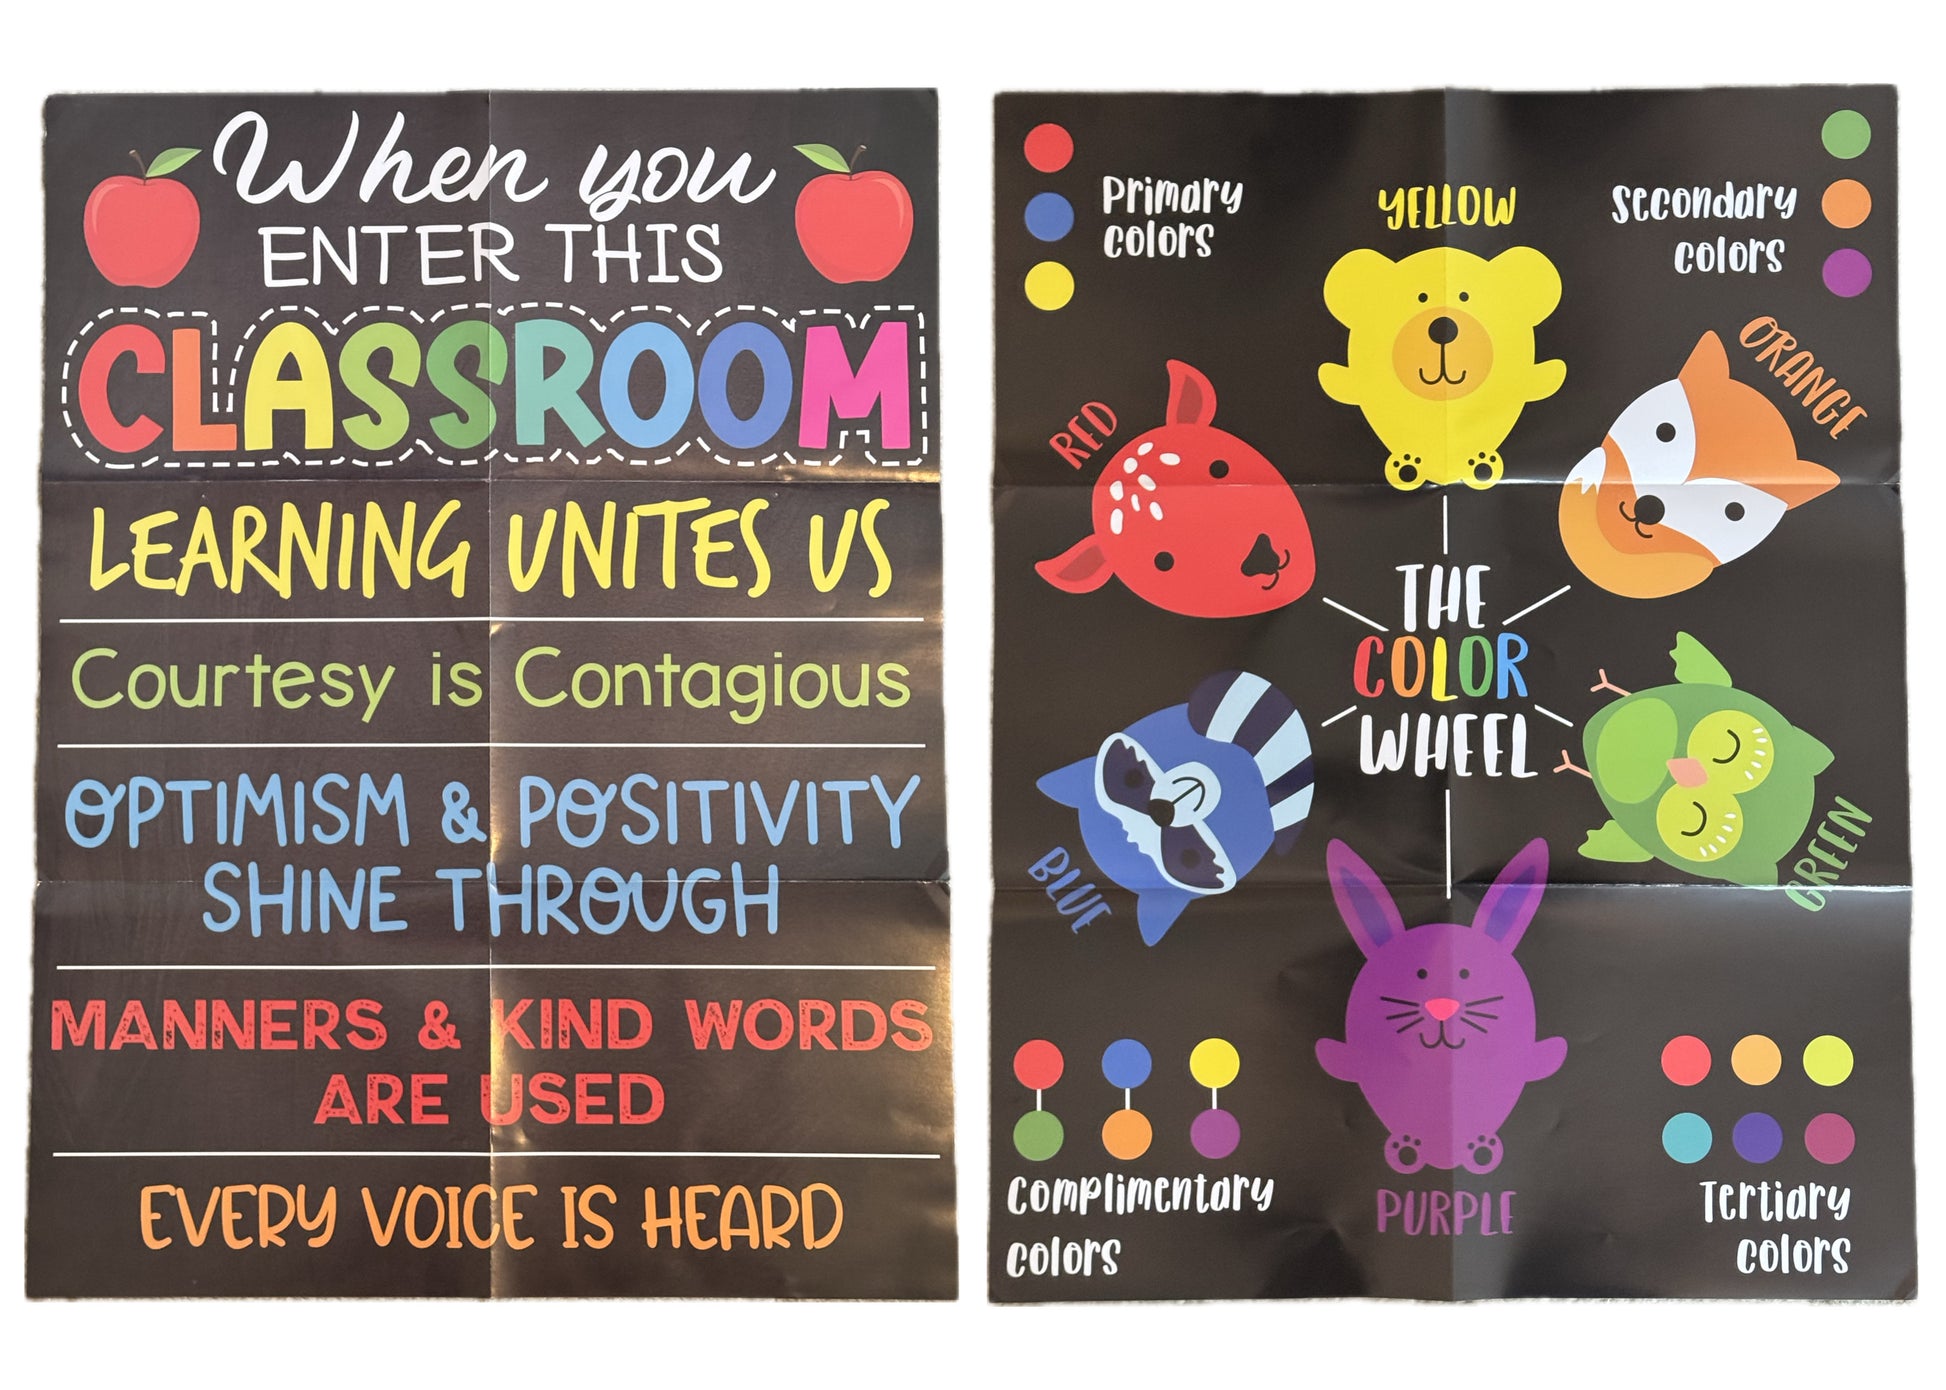 When you
ENTER THIS
CLASSROOM
LEARNING UNITES US
Courtesy is Contagious
OPTIMISM & POSITIVITY
SHINE THROUGH
MANNERS & KIND WORDS
ARE USED
EVERY VOICE IS HEARD
Primary
colors
YELLOW
Secondary
colors
RED
ORANGE
THE
COLOR
WHEEL
BLUE
GREEN
PURPLE
Complimentary
colors
Tertiary
colors